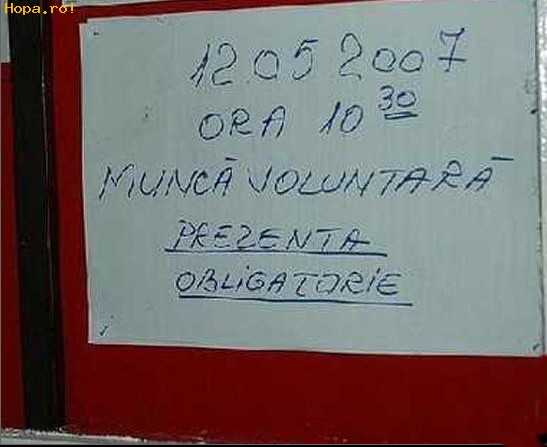 Hopa.ro!
12 05 2007
ORA 10 30
MUNCĂ VOLUNTARĂ
PREZENTA
OBLIGATORIE